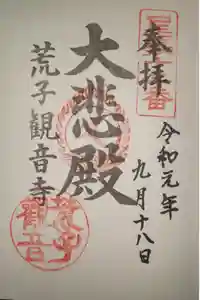 奉拝
令和元年
九月十八日
大悲殿
荒子観音寺
荒子
観音